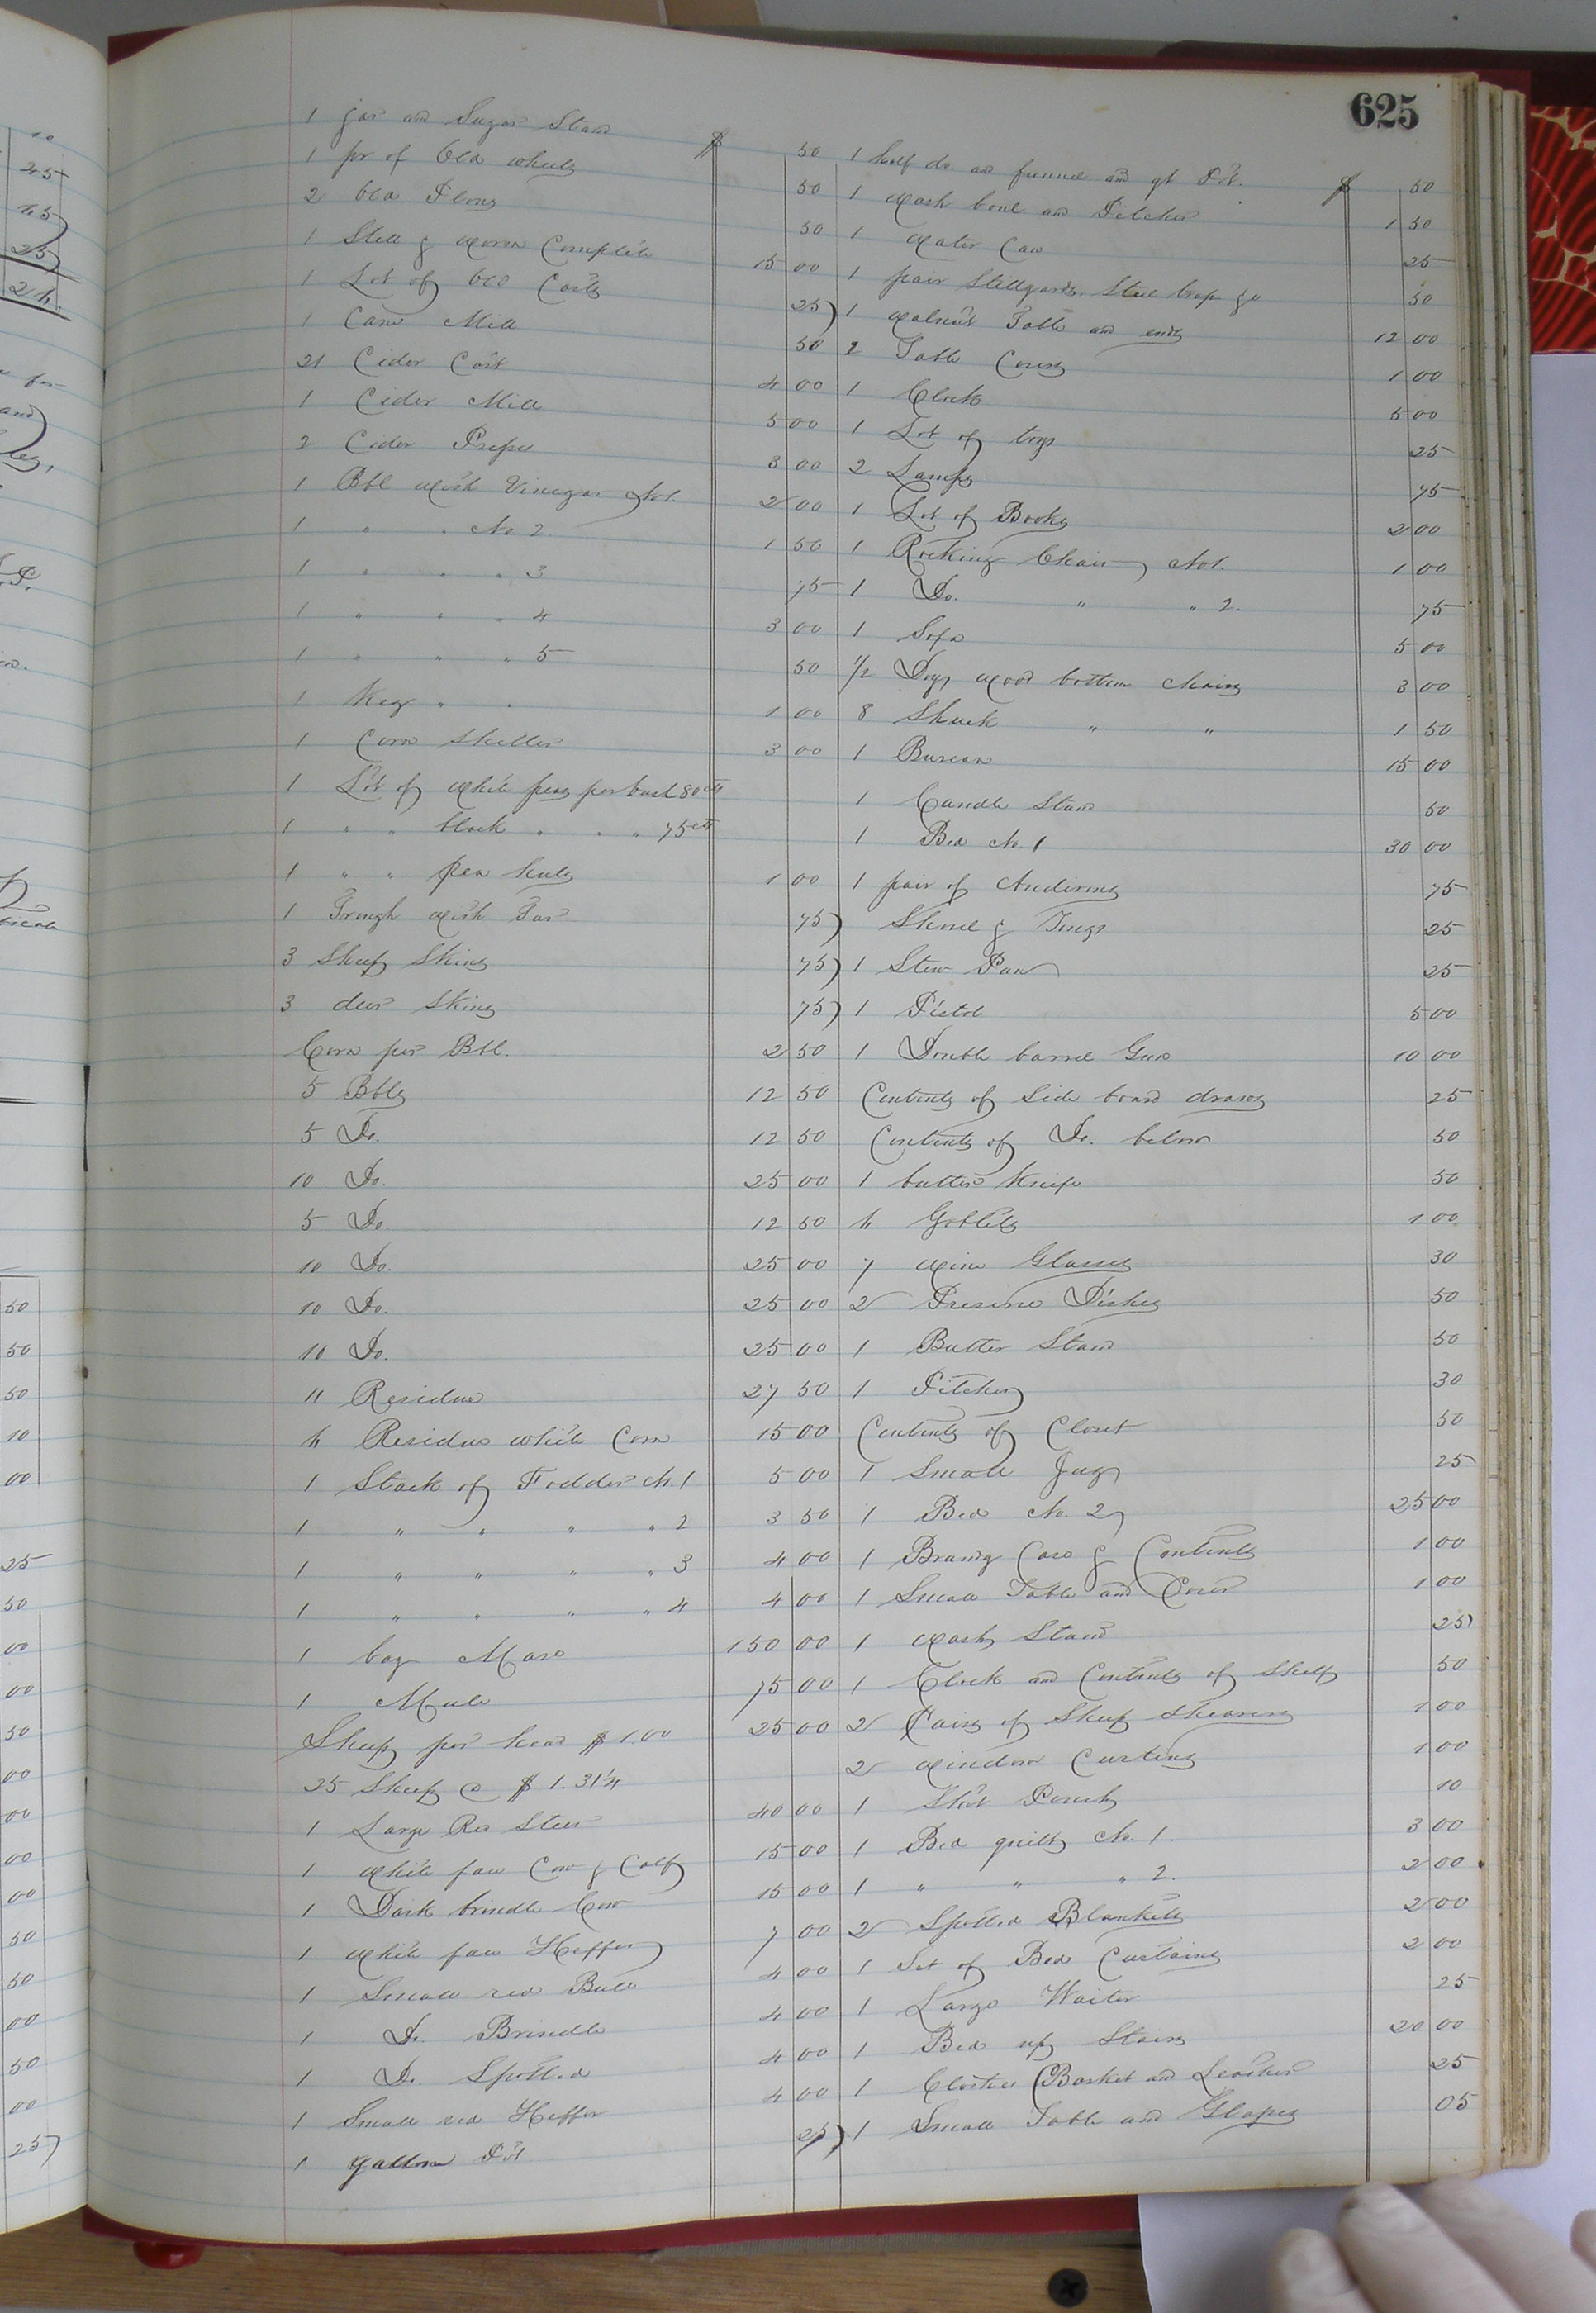 625
1 jar and Sugar Stand $ 50
1 pr of Old wheels 50
2 Old Plows 50
1 Still & Worm Complete 15 00
1 Lot of Old Casks 25
1 Cane Mill 50
21 Cider Cask 4 00
1 Cider Mill 5 00
2 Cider Press 8 00
1 Bbl with Vinegar No1. 2 00
1 " " No 2 1 50
1 " " " 3 75
1 " " " 4 3 00
1 " " " 5 50
1 Keg " " 1 00
1 Corn Sheller 3 00
1 Lot of white peas per bush 80 cts
1 " " black " " " 75 cts
1 " " pea hulls 1 00
1 Trough with Tar 75
3 Sheep Skins 75
3 deer Skins 75
Corn per Bbl. 2 50
5 Bbls 12 50
5 Do. 12 50
10 Do. 25 00
5 Do. 12 50
10 Do. 25 00
10 Do. 25 00
10 Do. 25 00
11 Residue 27 50
6 Residue white Corn 15 00
1 Stack of Fodder No. 1 5 00
1 " " " " 2 3 50
1 " " " " 3 4 00
1 " " " " 4 4 00
1 bay Mare 150 00
1 Mule 75 00
Sheep per head $ 1.00 25 00
25 Sheep @ $ 1.31 1/4
1 Large Red Steer 40 00
1 White face Cow & Calf 15 00
1 Dark brindle Cow 15 00
1 White face Heffer 7 00
1 Small red Bull 4 00
1 Do. Brindle 4 00
1 Do. Spotted 4 00
1 Small red Heffer 4 00
1 gallon Pot 25
1 half do. and funnel and qt Pot. $ 50
1 Wash bowl and Pitcher 1 50
1 Water Can 25
1 pair Stillyards. Steel trap &c 50
1 Walnut Table and ends 12 00
2 Table Covers 1 00
1 Clock 5 00
1 Lot of toys 25
2 Lamps 75
1 Lot of Books 2 00
1 Rocking Chair No1. 1 00
1 Do. " " 2. 75
1 Sofa 5 00
1/2 Doz wood bottom chairs 3 00
8 Shuck " " 1 50
1 Bureau 15 00
1 Candle Stand 50
1 Bed No. 1 30 00
1 pair of Andirons 75
Shovel & Tongs 25
1 Stew Pan 25
1 Pistol 5 00
1 Double barrel Gun 10 00
Contents of Side board draws 25
Contents of Do. below 50
1 butter Knife 50
6 Goblets 1 00
7 Wine Glasses 30
2 Preserve Dishes 50
1 Butter Stand 50
1 Pitcher 30
Contents of Closet 50
1 Small Jug 25
1 Bed No. 2 25 00
1 Brandy Case & Contents 1 00
1 Small Table and Cover 1 00
1 Wash Stand 25
1 Clock and Contents of Shelf 50
2 Pairs of Sheep Shearers 1 00
2 Window Curtins 1 00
1 Shot Pouch 10
1 Bed quilt No. 1. 3 00
1 " " " 2. 2 00
2 Spotted Blankets 2 00
1 Set of Bed Curtains 2 00
1 Large Waiter 25
1 Bed up Stairs 20 00
1 Clothes Basket and Leather 25
1 Small Table and Glapes 05